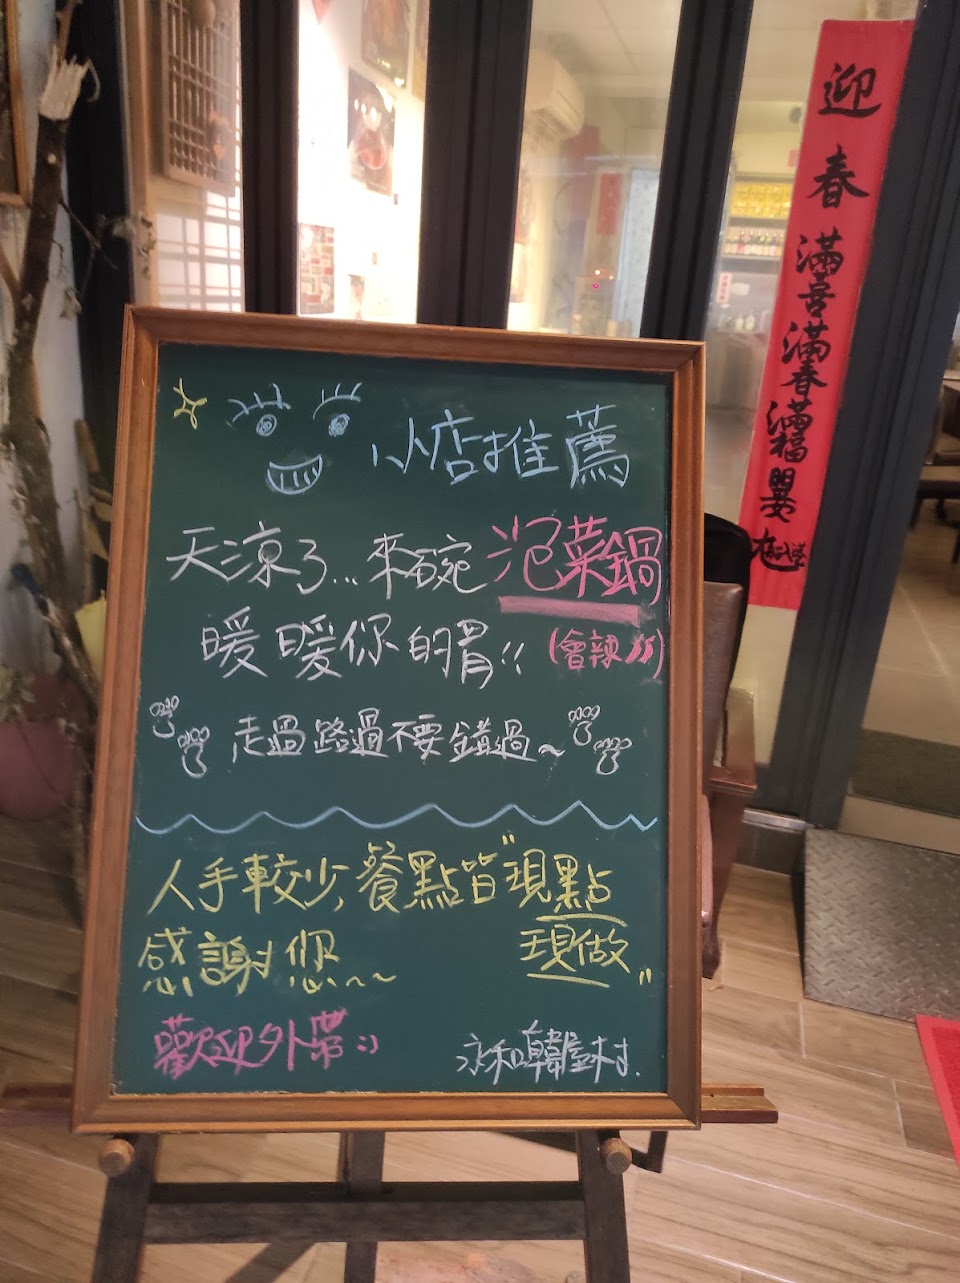 小店推薦
天涼了...來碗泡菜鍋
暖暖你的胃!!(會辣)
走過路過不要錯過~
人手較少,餐點皆"現點
現做"
感謝您~~
歡迎外帶:)
永和韓屋村.
迎春滿喜滿春滿福